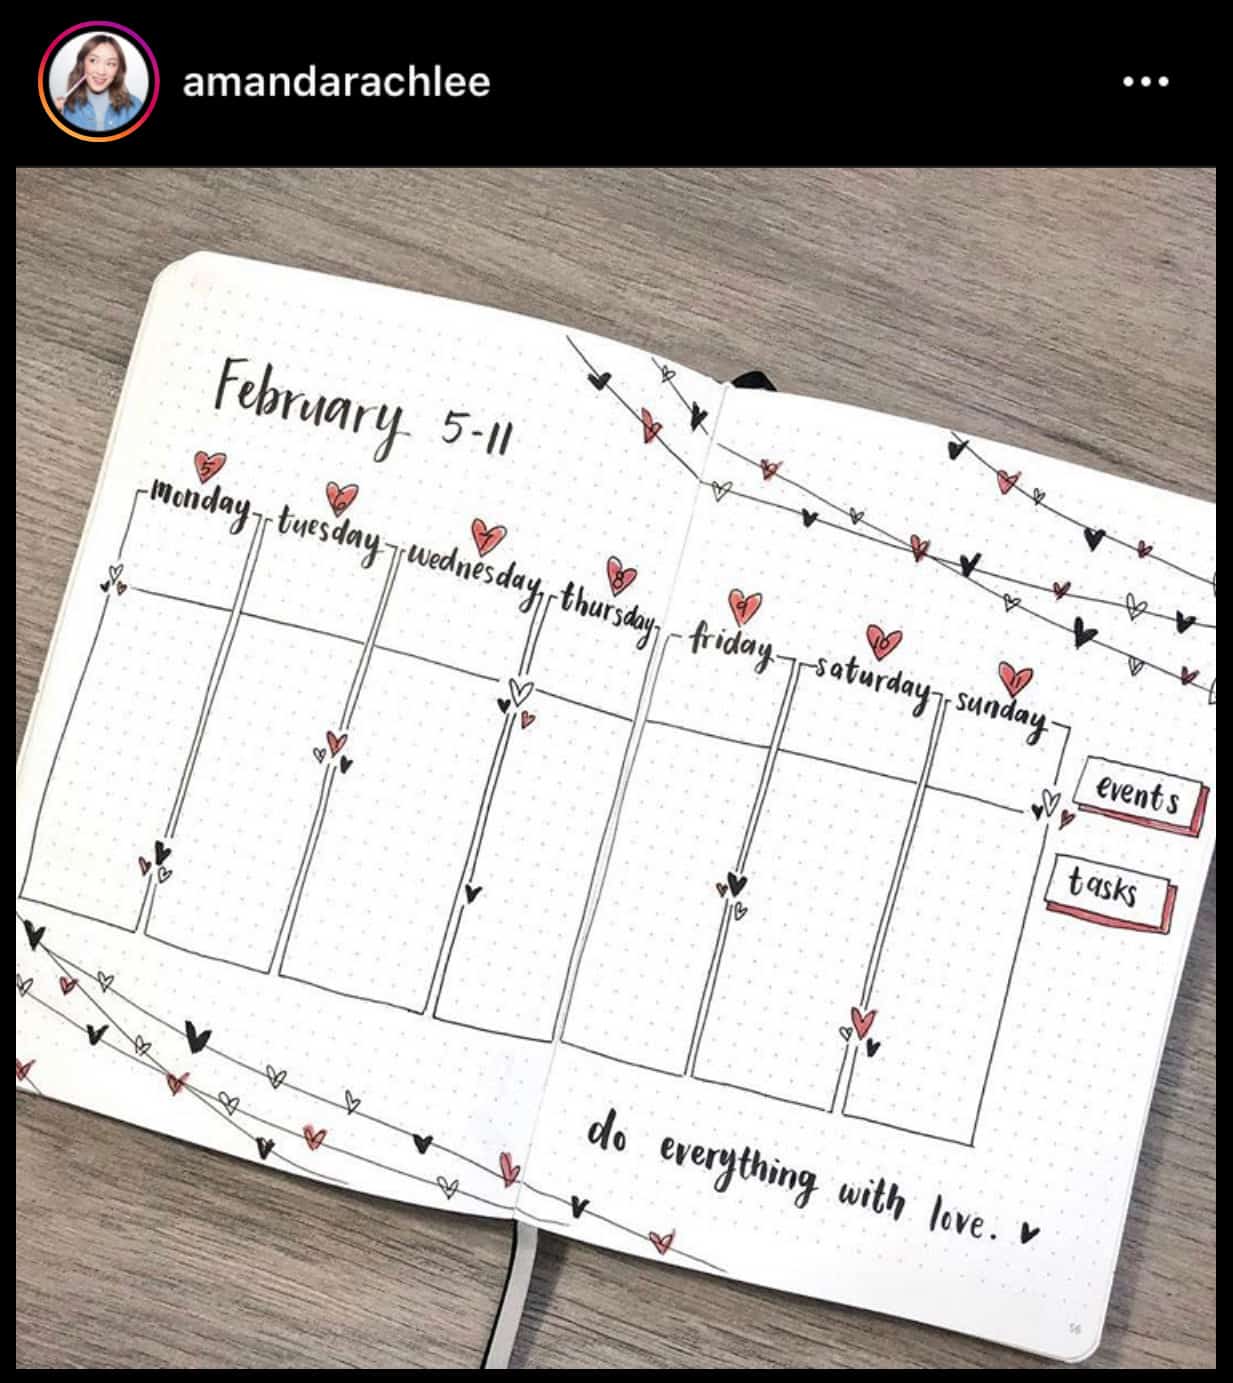 amandarachlee
February 5-11
5
monday
6
tuesday
7
wednesday
8
thursday
9
friday
10
saturday
11
sunday
events
tasks
do everything with love.
56